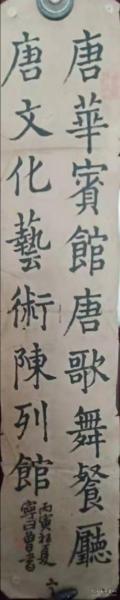 唐華賓館唐歌舞餐廳
唐文化藝術陳列館
丙寅初夏